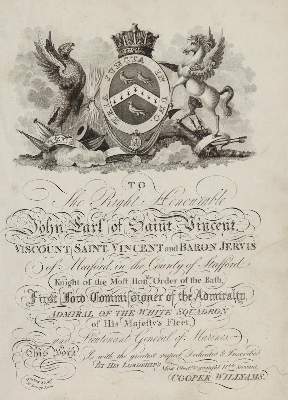 TRIA JUNCTA IN UNO
TO
The Right Honourable
John Earl of Saint Vincent,
VISCOUNT SAINT VINCENT and BARON JERVIS
of Meaford, in the County of Stafford
Knight of the Most Hon. Order of the Bath,
First Lord Commissioner of the Admiralty,
ADMIRAL OF THE WHITE SQUADRON
of His Majesty's Fleet,
and Lieutenant General of Marines
This Work
Is, with the greatest respect, Dedicated & Inscribed
BY HIS LORDSHIP'S
Most Obed.t
COOPER WILLYAMS.